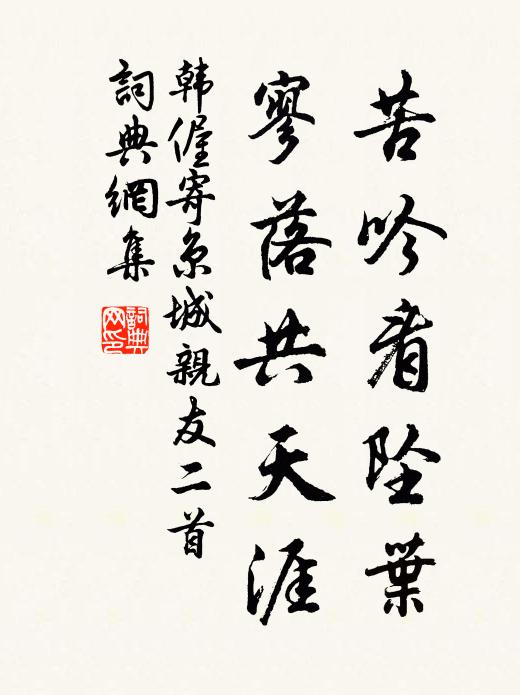 苦吟看墜葉
寥落共天涯
韩偓寄京城親友二首
詞典網集
詞典网印